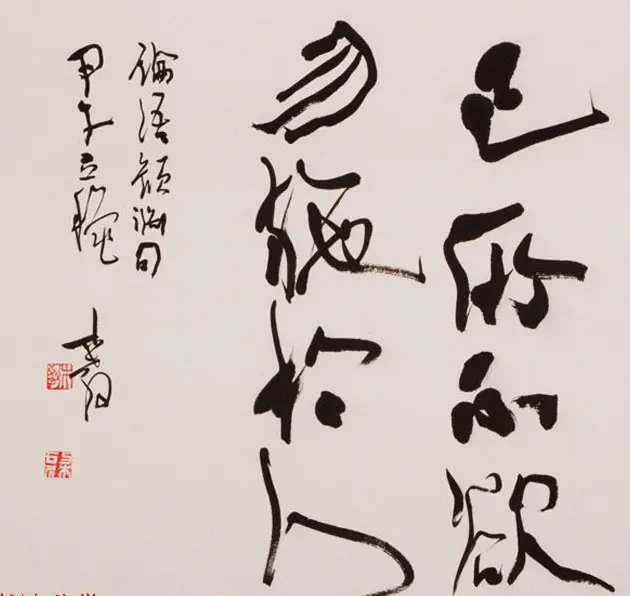 己所不欲
勿施於人
論語顏淵句
甲午立秋